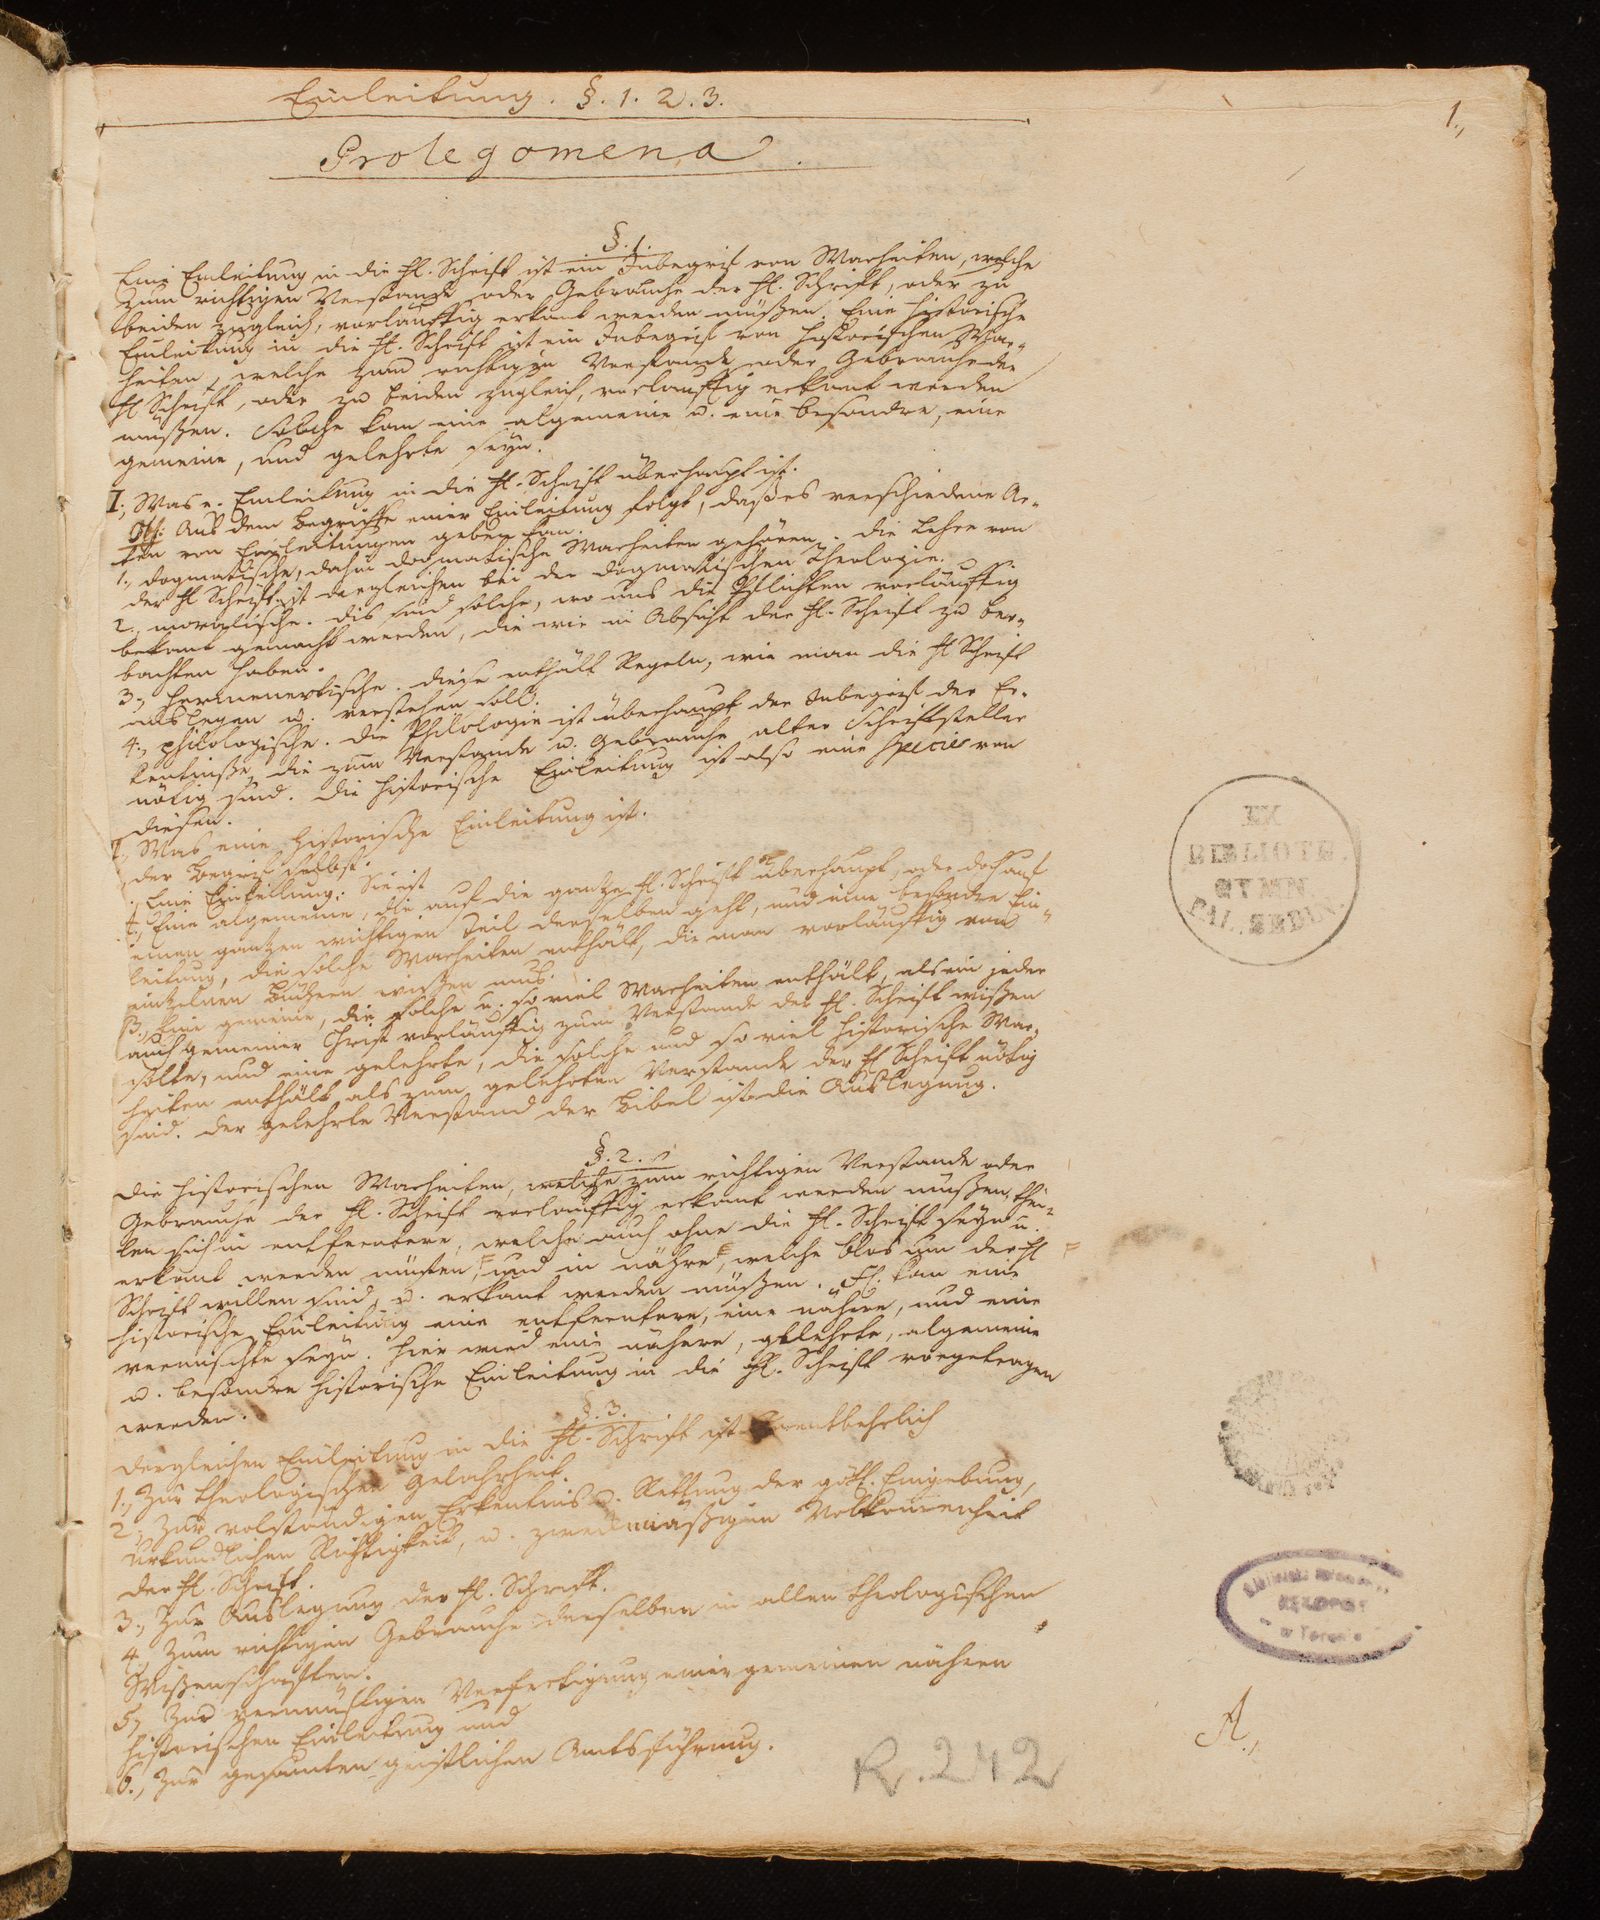 Einleitung. §. 1. 2. 3.
1.,
Prolegomena.
§. 1.
Eine Einleitung in die Hl. Schrift ist ein Inbegrif von Warheiten, welche
zum richtigen Verstande oder Gebrauche der Hl. Schrift, oder zu
beiden zugleich, vorläuffig erkant werden müßen. Eine historische
Einleitung in die Hl. Schrift ist ein Inbegrif von historischen War-
heiten, welche zum richtigen Verstande oder Gebrauche der
Hl Schrift, oder zu beiden zugleich, vorläuffig erkant werden
müßen. Solche kan eine algemeine u. eine besondre, eine
gemeine, und gelehrte seyn.
I., Was e. Einleitung in die Hl. Schrift überhaupt ist.
Aus dem Begriffe einer Einleitung folgt, daß es verschiedene Ar-
ten von Einleitungen geben kan.
1., dogmatische, dahin dogmatische Warheiten gehören. Die Lehre von
der Hl Schrift ist dergleichen bei der dogmatischen Theologie.
2., moralische. Dis sind solche, wo uns die Pflichten vorläuffig
bekant gemacht werden, die wir in Absicht der Hl. Schrift zu beo-
bachten haben.
3., hermenevtische. Diese enthält Regeln, wie man die Hl Schrift
auslegen u. verstehen soll.
4., philologische. Die Philologie ist überhaupt der Inbegrif der Er-
kentniße, die zum Verstande u. Gebrauche alter Schriftsteller
nötig sind. Die historische Einleitung ist also eine species von
diesen.
Was eine historische Einleitung ist.
der Begrif selbst.
Eine Eintheilung. Sie ist
Eine algemeine, die auf die gantze Hl. Schrift überhaupt, oder doch auf
einen gantzen wichtigen Teil derselben geht, und eine besondre Ein-
leitung, die solche Warheiten enthält, die man vorläuffig von
einzelnen Büchern wißen mus.
B., Eine gemeine, die solche u. so viel Warheiten enthält, als ein jeder
auch gemeiner Christ vorläuffig zum Verstande der Hl. Schrift wißen
solte, und eine gelehrte, die solche und so viel historische War-
heiten enthält als zum gelehrten Verstande der Hl Schrift nötig
sind. Der gelehrte Verstand der Bibel ist die Auslegung.
§. 2.
Die historischen Warheiten, welche zum richtigen Verstande oder
Gebrauche der Hl. Schrift vorläuffig erkant werden müßen, thei-
len sich in entferntere, welche auch ohne die Hl. Schrift seyn u.
erkant werden müsten, und in nähre, welche blos um der Hl
Schrift willen sind, u. erkant werden müßen. Es kan eine
historische Einleitung eine entferntere, eine nähere, und eine
vermischte seyn. Hier wird eine nähere, gelehrte, algemeine
u. besondre historische Einleitung in die Hl. Schrift vorgetragen
werden.
§. 3.
Dergleichen Einleitung in die Hl. Schrift ist unentbehrlich
1., Zur theologischen Gelahrheit.
2., Zur volständigen Erkentnis u. Rettung der götl. Eingebung,
urkundlichen Richtigkeit, u. zweckmäßigen Volkommenheit
der Hl. Schrift.
3., Zur Auslegung der Hl. Schrift.
4., Zum richtigen Gebrauche derselben in allen theologischen
Wißenschaften.
5., Zur vernünftigen Verfertigung einer gemeinen nähern
historischen Einleitung und
6., Zur gesamten geistlichen Amtsführung.
R. 242
A.,
EX
BIBLIOTH.
GYMN.